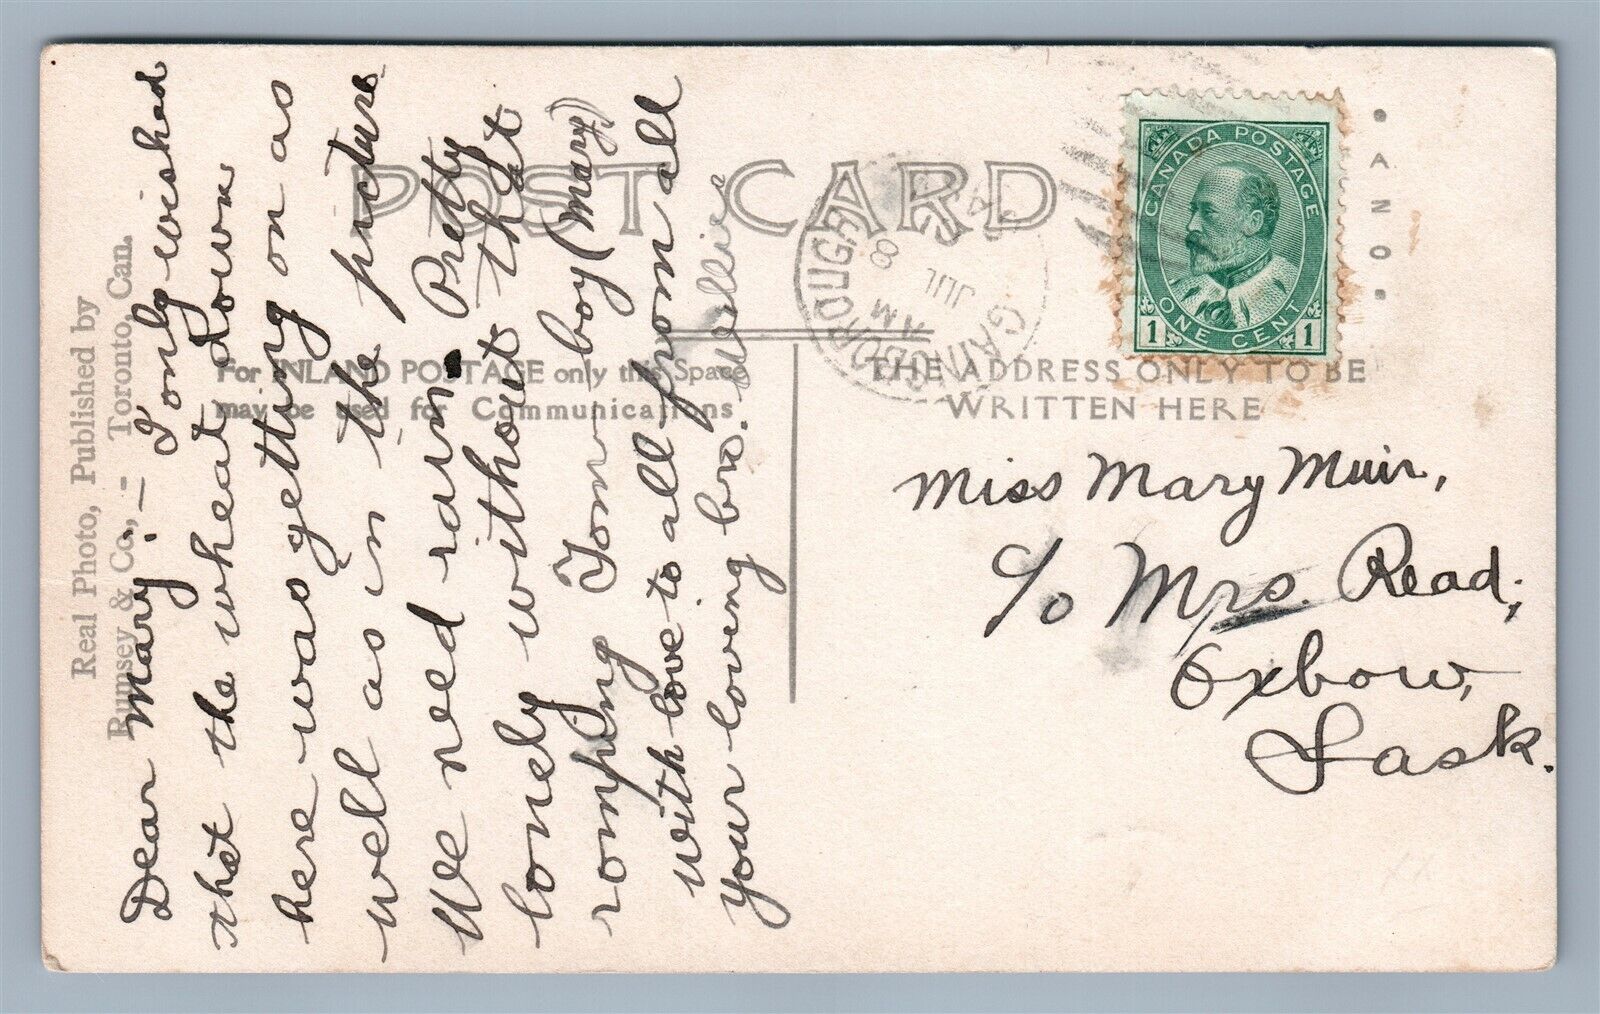 Real Photo, Published by
Rumsey & Co., - Toronto, Can.
POST CARD
For INLAND POSTAGE only this Space
may be used for Communications
THE ADDRESS ONLY TO BE
WRITTEN HERE
Dear Mary:— I only wished
that the wheat down
here was getting on as
well as in the picture
We need rain. Pretty
lonely without that
romping Tom boy (Mary)
with love to all from all
your loving bro.
CANADA POSTAGE
ONE CENT
1 1
GAINSBOROUGH
AM
JUL
8
SASK
Miss Mary Muir,
c/o Mrs. Read,
Oxbow,
Sask.